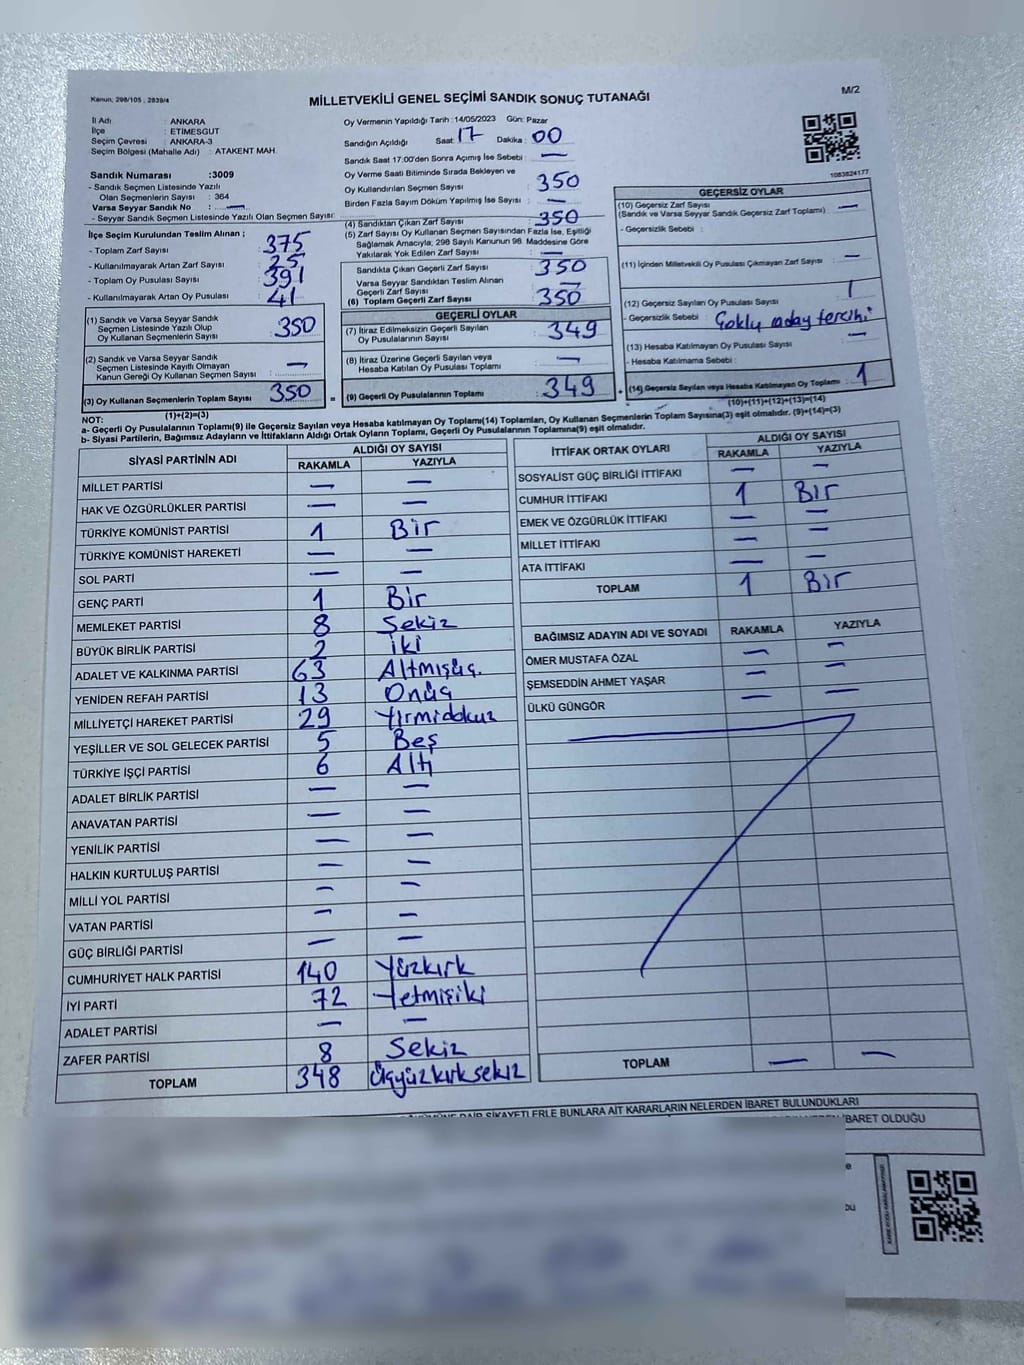 Kanun; 298/105 , 2839/4
MİLLETVEKİLİ GENEL SEÇİMİ SANDIK SONUÇ TUTANAĞI
M/2
İl Adı : ANKARA
İlçe : ETİMESGUT
Seçim Çevresi : ANKARA-3
Seçim Bölgesi (Mahalle Adı) : ATAKENT MAH.
Sandık Numarası :3009
- Sandık Seçmen Listesinde Yazılı
Olan Seçmenlerin Sayısı : 364
Varsa Seyyar Sandık No : —
- Seyyar Sandık Seçmen Listesinde Yazılı Olan Seçmen Sayısı:
İlçe Seçim Kurulundan Teslim Alınan ;
- Toplam Zarf Sayısı : 375
- Kullanılmayarak Artan Zarf Sayısı : 25
- Toplam Oy Pusulası Sayısı : 391
- Kullanılmayarak Artan Oy Pusulası : 41
(1) Sandık ve Varsa Seyyar Sandık
Seçmen Listesinde Yazılı Olup
Oy Kullanan Seçmenlerin Sayısı : 350
(2) Sandık ve Varsa Seyyar Sandık
Seçmen Listesinde Kayıtlı Olmayan
Kanun Gereği Oy Kullanan Seçmen Sayısı : —
(3) Oy Kullanan Seçmenlerin Toplam Sayısı : 350
(1)+(2)=(3)
Oy Vermenin Yapıldığı Tarih :14/05/2023 Gün: Pazar
Sandığın Açıldığı Saat: 17 Dakika : 00
Sandık Saat 17:00'den Sonra Açımış İse Sebebi : —
Oy Verme Saati Bitiminde Sırada Bekleyen ve
Oy Kullandırılan Seçmen Sayısı : 350
Birden Fazla Sayım Döküm Yapılmış İse Sayısı : —
(4) Sandıktan Çıkan Zarf Sayısı : 350
(5) Zarf Sayısı Oy Kullanan Seçmen Sayısından Fazla İse, Eşitliği
Sağlamak Amacıyla; 298 Sayılı Kanunun 98. Maddesine Göre
Yakılarak Yok Edilen Zarf Sayısı : —
Sandıkta Çıkan Geçerli Zarf Sayısı : 350
Varsa Seyyar Sandıktan Teslim Alınan
Geçerli Zarf Sayısı : —
(6) Toplam Geçerli Zarf Sayısı : 350
GEÇERLİ OYLAR
(7) İtiraz Edilmeksizin Geçerli Sayılan
Oy Pusulalarının Sayısı : 349
(8) İtiraz Üzerine Geçerli Sayılan veya
Hesaba Katılan Oy Pusulası Toplamı : —
= (9) Geçerli Oy Pusulalarının Toplamı : 349 +
1083824177
GEÇERSİZ OYLAR
(10) Geçersiz Zarf Sayısı : —
(Sandık ve Varsa Seyyar Sandık Geçersiz Zarf Toplamı)
- Geçersizlik Sebebi :
(11) İçinden Milletvekili Oy Pusulası Çıkmayan Zarf Sayısı : —
(12) Geçersiz Sayılan Oy Pusulası Sayısı : 1
- Geçersizlik Sebebi : Çoklu aday tercihi
(13) Hesaba Katılmayan Oy Pusulası Sayısı : —
- Hesaba Katılmama Sebebi :
(14) Geçersiz Sayılan veya Hesaba Katılmayan Oy Toplamı : 1
(10)+(11)+(12)+(13)=(14)
NOT:
a- Geçerli Oy Pusulalarının Toplamı(9) ile Geçersiz Sayılan veya Hesaba katılmayan Oy Toplamı(14) Toplamları, Oy Kullanan Seçmenlerin Toplam Sayısına(3) eşit olmalıdır. (9)+(14)=(3)
b- Siyasi Partilerin, Bağımsız Adayların ve İttifakların Aldığı Ortak Oyların Toplamı, Geçerli Oy Pusulalarının Toplamına(9) eşit olmalıdır.
SİYASİ PARTİNİN ADI ALDIĞI OY SAYISI
RAKAMLA YAZIYLA
MİLLET PARTİSİ — —
HAK VE ÖZGÜRLÜKLER PARTİSİ — —
TÜRKİYE KOMÜNİST PARTİSİ 1 Bir
TÜRKİYE KOMÜNİST HAREKETİ — —
SOL PARTİ — —
GENÇ PARTİ 1 Bir
MEMLEKET PARTİSİ 8 Sekiz
BÜYÜK BİRLİK PARTİSİ 2 İki
ADALET VE KALKINMA PARTİSİ 63 Altmışüç.
YENİDEN REFAH PARTİSİ 13 Onüç
MİLLİYETÇİ HAREKET PARTİSİ 29 Yirmidokuz
YEŞİLLER VE SOL GELECEK PARTİSİ 5 Beş
TÜRKİYE İŞÇİ PARTİSİ 6 Altı
ADALET BİRLİK PARTİSİ — —
ANAVATAN PARTİSİ — —
YENİLİK PARTİSİ — —
HALKIN KURTULUŞ PARTİSİ — —
MİLLİ YOL PARTİSİ — —
VATAN PARTİSİ — —
GÜÇ BİRLİĞİ PARTİSİ — —
CUMHURİYET HALK PARTİSİ 140 Yüzkırk
İYİ PARTİ 72 Yetmişiki
ADALET PARTİSİ — —
ZAFER PARTİSİ 8 Sekiz
TOPLAM 348 Üçyüzkırksekiz
İTTİFAK ORTAK OYLARI ALDIĞI OY SAYISI
RAKAMLA YAZIYLA
SOSYALİST GÜÇ BİRLİĞİ İTTİFAKI — —
CUMHUR İTTİFAKI 1 Bir
EMEK VE ÖZGÜRLÜK İTTİFAKI — —
MİLLET İTTİFAKI — —
ATA İTTİFAKI — —
TOPLAM 1 Bir
BAĞIMSIZ ADAYIN ADI VE SOYADI RAKAMLA YAZIYLA
ÖMER MUSTAFA ÖZAL — —
ŞEMSEDDİN AHMET YAŞAR — —
ÜLKÜ GÜNGÖR — —
TOPLAM — —
ŞİKAYETLERLE BUNLARA AİT KARARLARIN NELERDEN İBARET BULUNDUKLARI
İBARET OLDUĞU